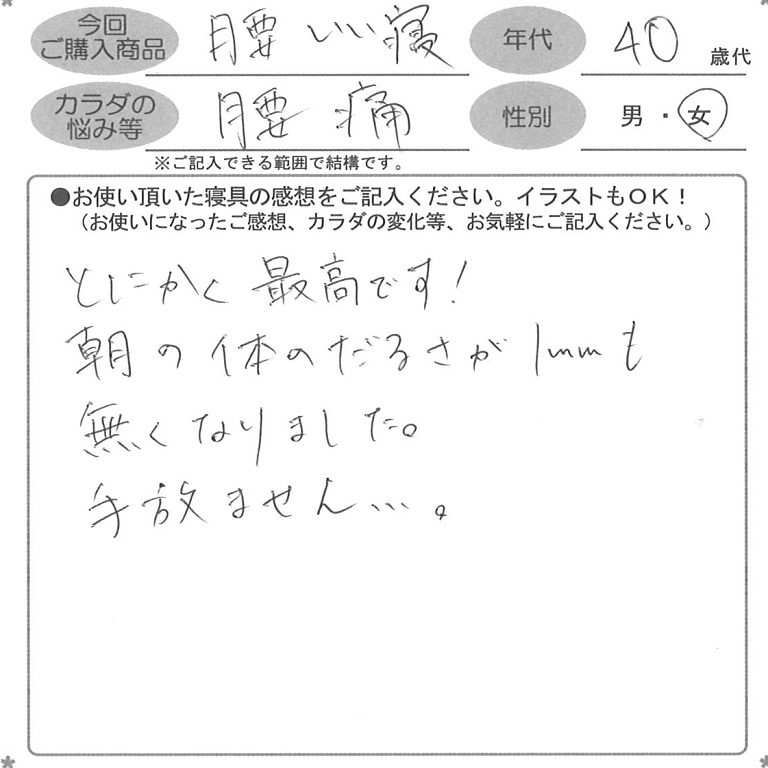 今回
ご購入商品
腰いい寝
年代
40 歳代
カラダの
悩み等
腰痛
性別
男・女
※ご記入できる範囲で結構です。
●お使い頂いた寝具の感想をご記入ください。イラストもOK!
(お使いになったご感想、カラダの変化等、お気軽にご記入ください。)
とにかく最高です!
朝の体のだるさが1mmも
無くなりました。
手放ません…。